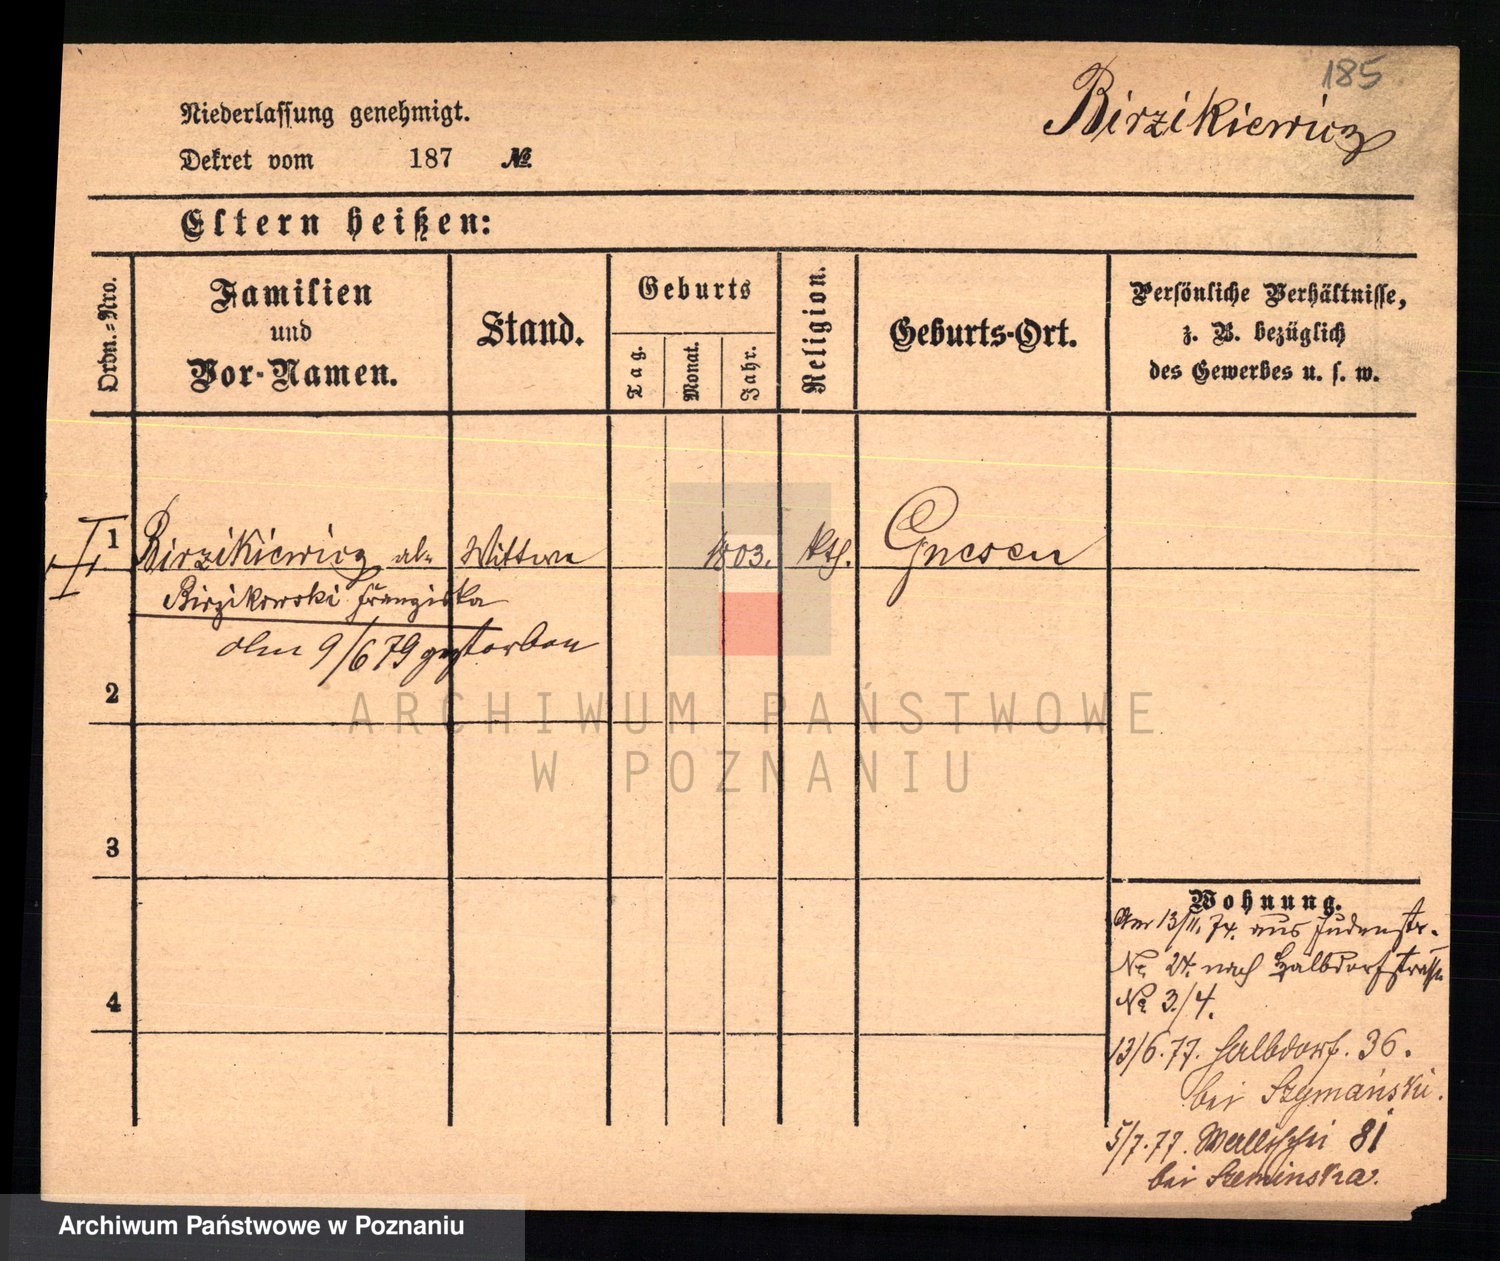 185
Birzikiewicz
Niederlassung genehmigt.
Dekret vom 187 №
Eltern heißen:
Ordn.=Nro.
Familien
und
Vor-Namen.
Stand.
Geburts
Tag.
Monat.
Jahr.
Religion.
Geburts-Ort.
Persönliche Verhältnisse,
z. B. bezüglich
des Gewerbes u. s. w.
1 Birzikiewicz Wittwe 1803. kth. Gnesen
Birzikowski Franziska
9/6 79 gestorben
2
3
4
Wohnung.
Am 13/11. 74. aus Judenstr.
No 24. nach Halbdorfstrasse
No 3./4.
13/6. 77. Halbdorf. 36.
bei Szymański.
5/7. 77. Wallischei 81
bei Szeminska.
ARCHIWUM PAŃSTWOWE
W POZNANIU
Archiwum Państwowe w Poznaniu